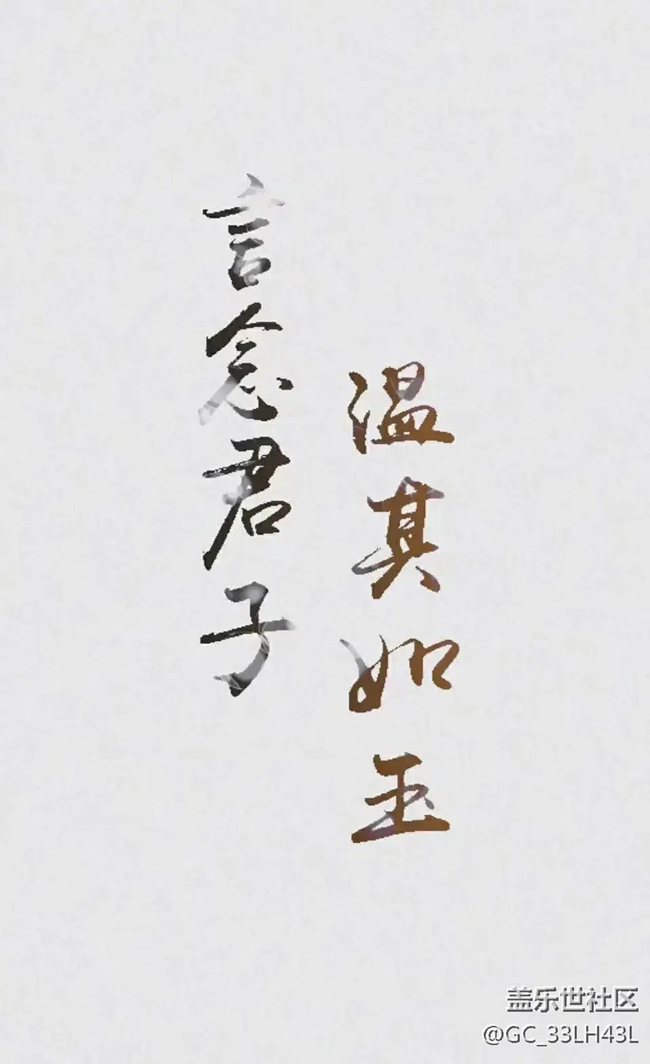 言念君子
温其如玉
盖乐世社区
@GC_33LH43L